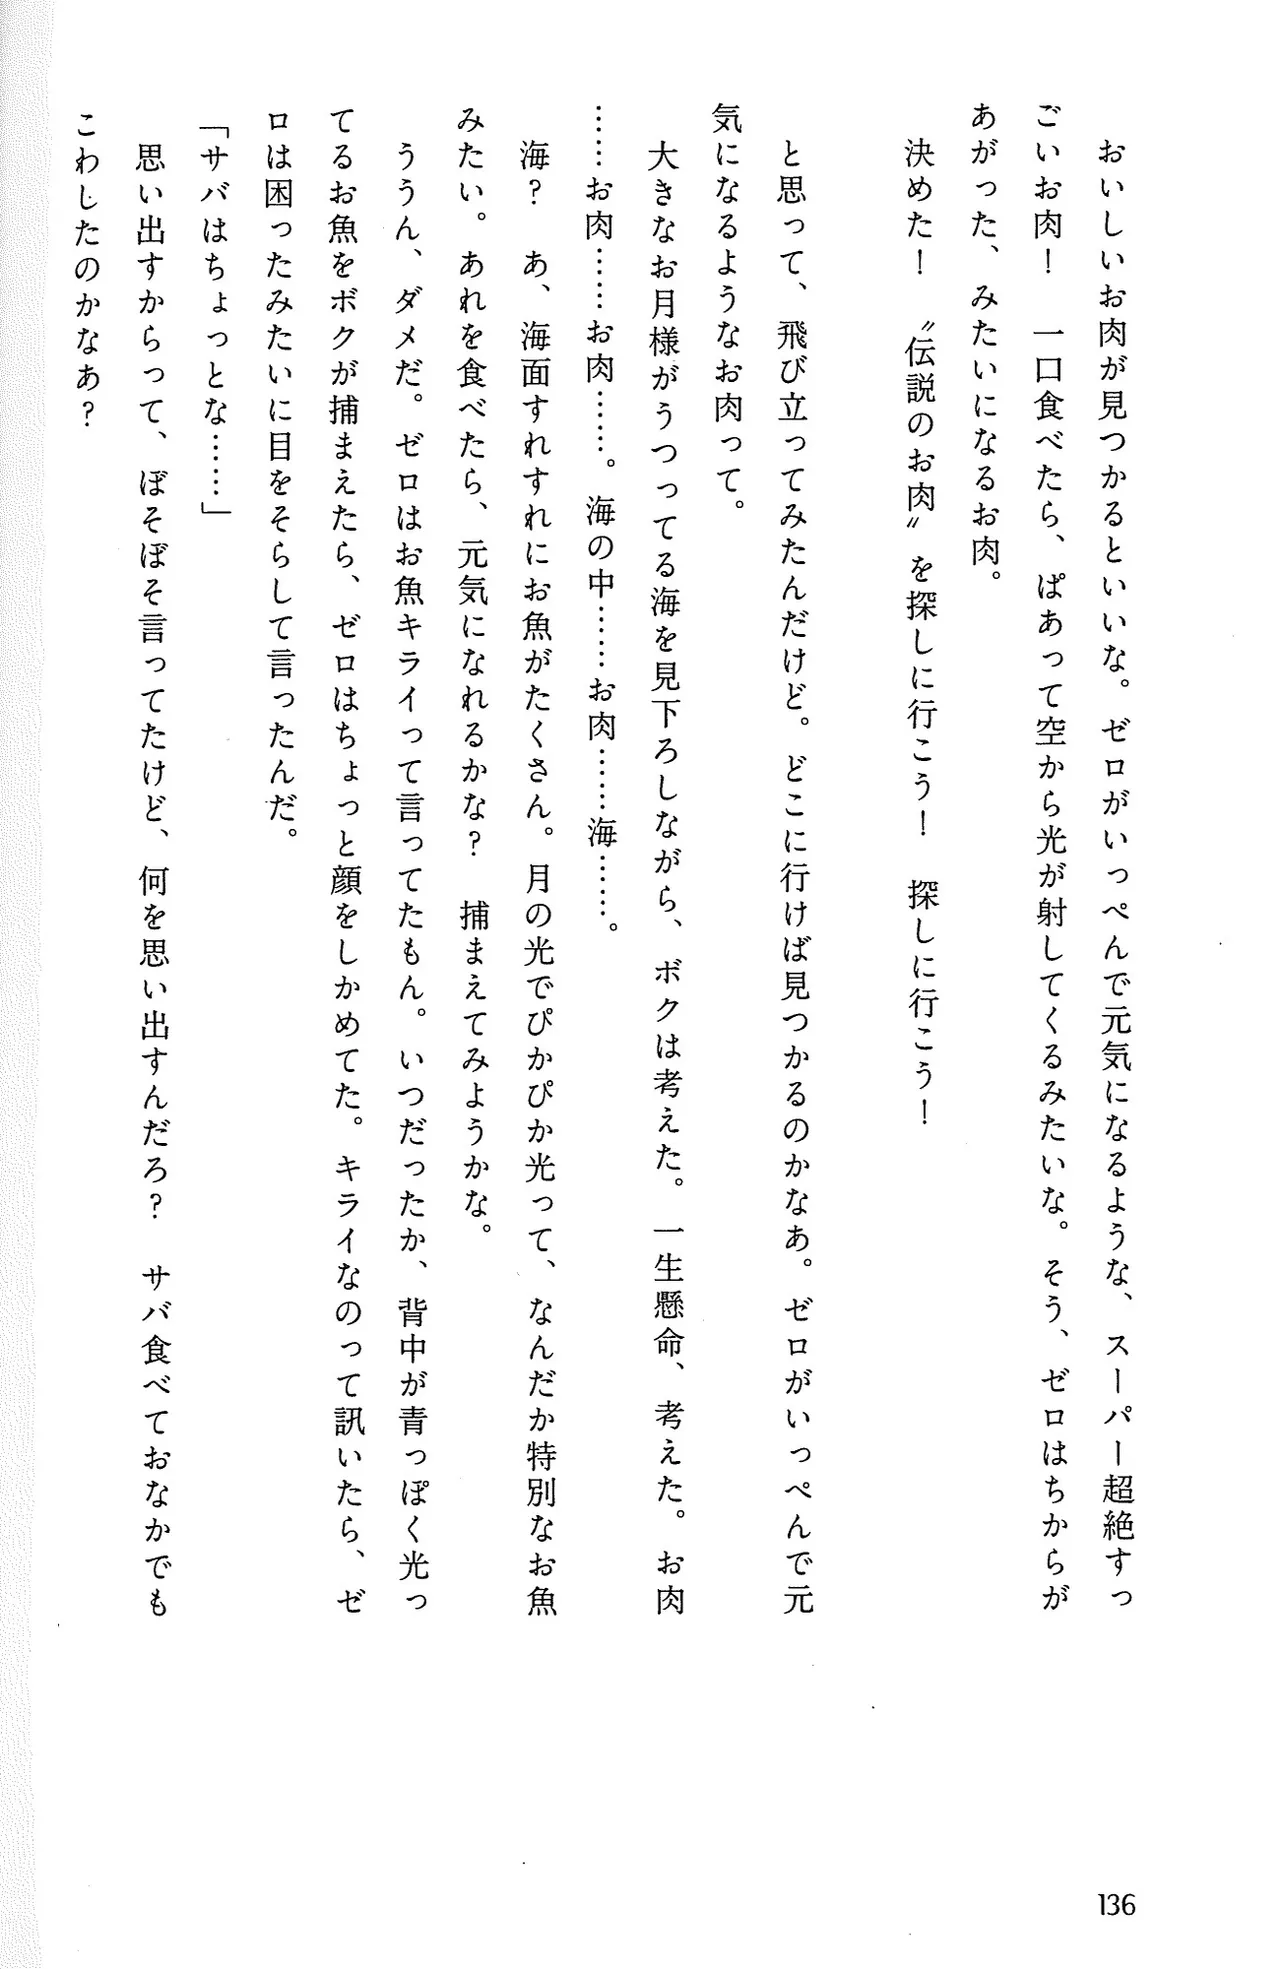 おいしいお肉が見つかるといいな。ゼロがいっぺんで元気になるような、スーパー超絶すっ
ごいお肉！　一口食べたら、ぱあって空から光が射してくるみたいな。そう、ゼロはちからが
あがった、みたいになるお肉。
　決めた！　〝伝説のお肉〟を探しに行こう！　探しに行こう！
　と思って、飛び立ってみたんだけど。どこに行けば見つかるのかなあ。ゼロがいっぺんで元
気になるようなお肉って。
　大きなお月様がうつってる海を見下ろしながら、ボクは考えた。一生懸命、考えた。お肉
……お肉……お肉……。海の中……お肉……海……。
　海？　あ、海面すれすれにお魚がたくさん。月の光でぴかぴか光って、なんだか特別なお魚
みたい。あれを食べたら、元気になれるかな？　捕まえてみようかな。
　ううん、ダメだ。ゼロはお魚キライって言ってたもん。いつだったか、背中が青っぽく光っ
てるお魚をボクが捕まえたら、ゼロはちょっと顔をしかめてた。キライなのって訊いたら、ゼ
ロは困ったみたいに目をそらして言ったんだ。
「サバはちょっとな……」
　思い出すからって、ぼそぼそ言ってたけど、何を思い出すんだろ？　サバ食べておなかでも
こわしたのかなあ？
136